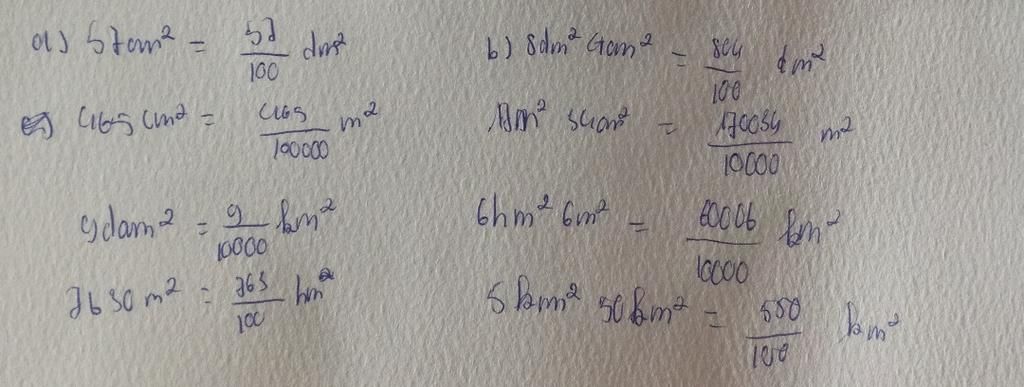 a) 57cm² = 57/100 dm²
b) 8dm² 4cm² = 804/100 dm²
465 cm² = 465/10000 m²
17m² 34cm² = 170034/10000 m²
9dam² = 9/10000 km²
6hm² 6m² = 60006/10000 hm²
7630 m² = 763/100 hm²
5km² 50hm² = 550/100 km²